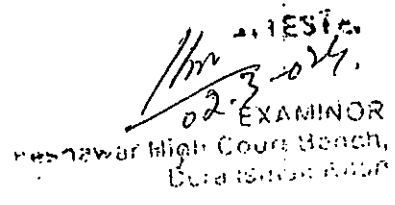 02-3-024.
EXAMINOR
Peshawar High Court Bench,
Dera Ismail Khan